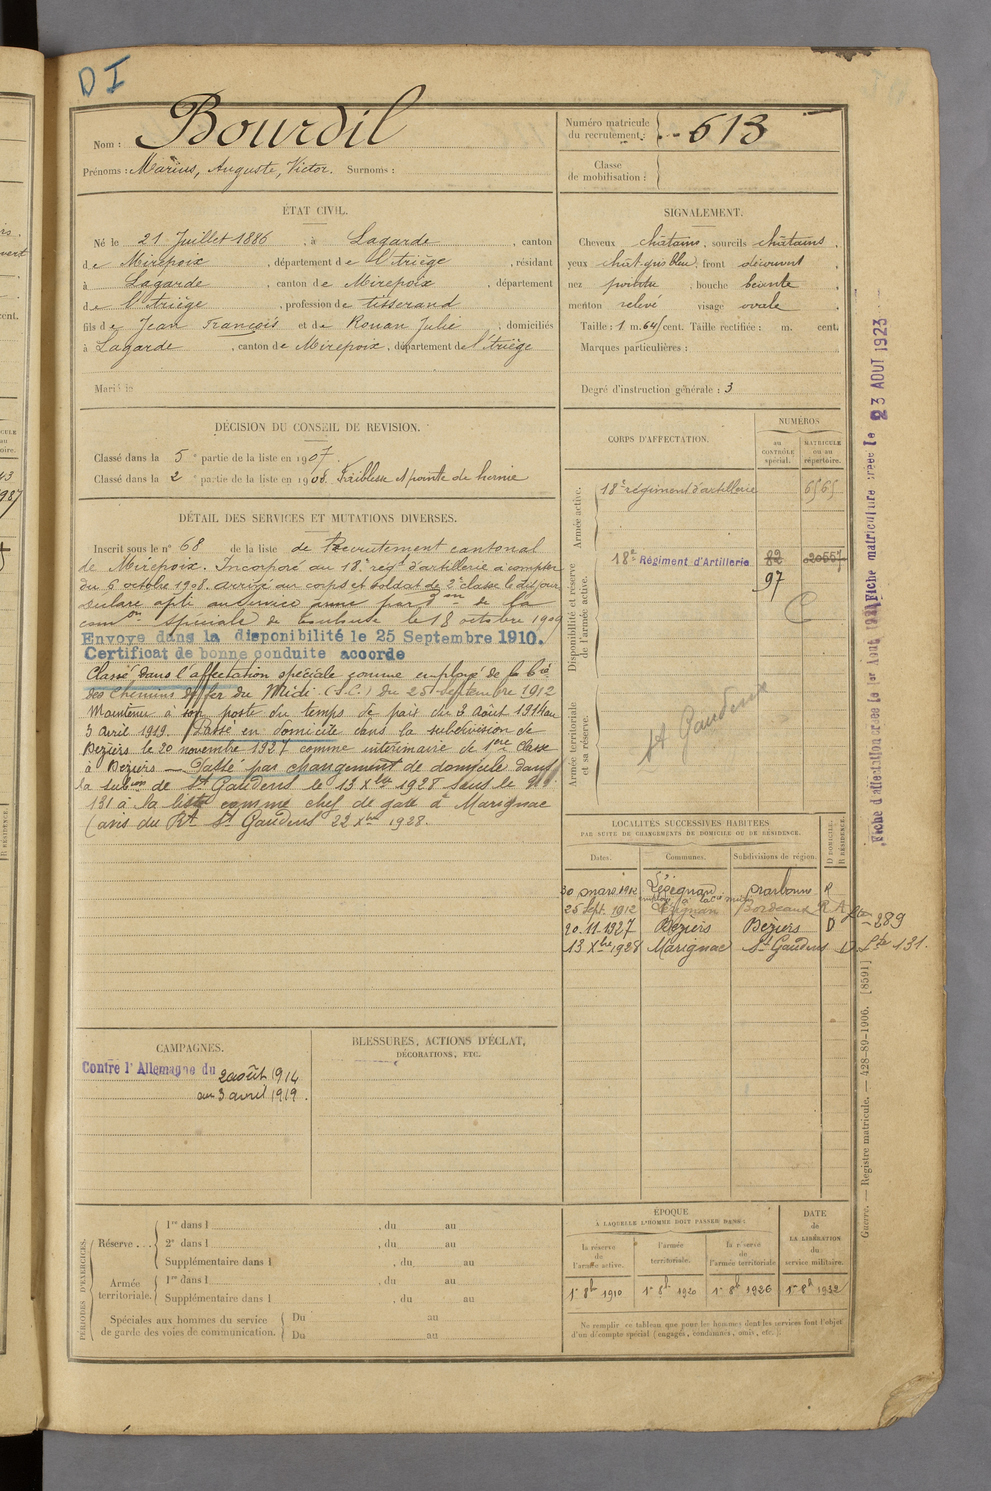 D I
Nom : Bourdil
Prénoms : Marius, Auguste, Victor. Surnoms :
Numéro matricule
du recrutement : 613
Classe
de mobilisation :
ÉTAT CIVIL.
Né le 21 Juillet 1886, à Lagarde, canton
de Mirepoix, département de l'Ariège, résidant
à Lagarde, canton de Mirepoix, département
de l'Ariège, profession de tisserand
fils de Jean François et de Rouan Julie, domiciliés
à Lagarde, canton de Mirepoix, département de l'Ariège
Marié le
SIGNALEMENT.
Cheveux châtains, sourcils châtains,
yeux chât-gris bleu, front découvert,
nez pointu, bouche béante,
menton relevé visage ovale
Taille : 1 m. 64 cent. Taille rectifiée : m. cent.
Marques particulières :
Degré d'instruction générale : 3
DÉCISION DU CONSEIL DE REVISION.
Classé dans la 5e partie de la liste en 1907.
Classé dans la 2e partie de la liste en 1908. Faiblesse et pointe de hernie
DÉTAIL DES SERVICES ET MUTATIONS DIVERSES.
Inscrit sous le n° 68 de la liste de Recrutement cantonal
de Mirepoix. Incorporé au 18e régt d'artillerie à compter
du 6 octobre 1908. Arrivé au corps et soldat de 2e classe le dit jour
déclaré apte au service armé par don de la
comon spéciale de Toulouse le 18 octobre 1909
Envoyé dans la disponibilité le 25 Septembre 1910.
Certificat de bonne conduite accordé
Classé dans l'affectation spéciale comme employé de la Cie
des Chemins de fer du Midi (S.C.) du 25 septembre 1912
Maintenu à son poste du temps de paix du 2 Août 1914 au
3 avril 1919. Passé en domicile dans la subdivision de
Béziers le 20 novembre 1927 comme intérimaire de 1ere Classe
à Béziers — Passé par changement de domicile dans
la subon de St Gaudens le 13 Xbre 1928 sous le no
131 à la liste comme chef de gare à Marignac
(avis du Rt St Gaudens 22 Xbre 1928.
CORPS D'AFFECTATION.
NUMÉROS
au
CONTRÔLE
spécial.
MATRICULE
ou au
répertoire.
Armée active.
18e régiment d'artillerie 6565
Disponibilité et réserve
de l'armée active.
18e Régiment d'Artillerie 82 20557
97
Armée territoriale
et sa réserve.
St Gaudens
LOCALITÉS SUCCESSIVES HABITÉES
PAR SUITE DE CHANGEMENTS DE DOMICILE OU DE RÉSIDENCE.
Dates. Communes. Subdivisions de région. D DOMICILE. R RÉSIDENCE.
30 mars 1912 Lézignan Narbonne R
25 Sept. 1912 Lézignan Bordeaux R A
20.11.1927 Béziers Béziers D 289
13 Xbre 1928 Marignac St Gaudens D 131.
CAMPAGNES.
Contre l'Allemagne du 2 août 1914
au 3 avril 1919.
BLESSURES, ACTIONS D'ÉCLAT,
DÉCORATIONS, ETC.
PÉRIODES D'EXERCICES.
Réserve . . .
1re dans l , du au
2e dans l , du au
Supplémentaire dans l , du au
Armée
territoriale.
1re dans l , du au
Supplémentaire dans l , du au
Spéciales aux hommes du service
de garde des voies de communication.
Du au
Du au
ÉPOQUE
À LAQUELLE L'HOMME DOIT PASSER DANS :
la réserve
de
l'armée active.
l'armée
territoriale.
la réserve
de
l'armée territoriale
DATE
de
LA LIBÉRATION
du
service militaire.
1er 8bre 1910 1er 8bre 1920 1er 8bre 1926 1er 8bre 1932
Ne remplir ce tableau que pour les hommes dont les services font l'objet
d'un décompte spécial (engagés, condamnés, omis, etc.).
Fiche d'affectation créée le 1er Août 1921 Fiche matriculaire créée le 23 AOUT 1923
Guerre. — Registre matricule. — 428-89-1906. [8591]